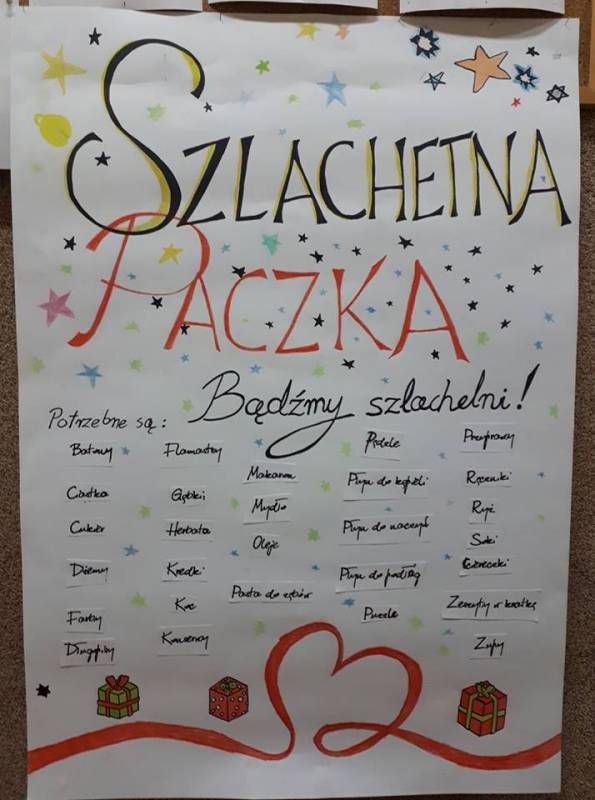 SZLACHETNA
PACZKA
Bądźmy szlachetni!
Potrzebne są:
Batony
Ciastka
Cukier
Dżemy
Farby
Długopisy
Flamastry
Gąbki
Herbata
Kredki
Koc
Konserwy
Makaron
Mydło
Oleje
Pasta do zębów
Płyn do kąpieli
Płyn do naczyń
Płyn do podłóg
Puzzle
Przyprawy
Ręczniki
Ryż
Soki
Ściereczki
Zeszyty w kratkę
Zupy